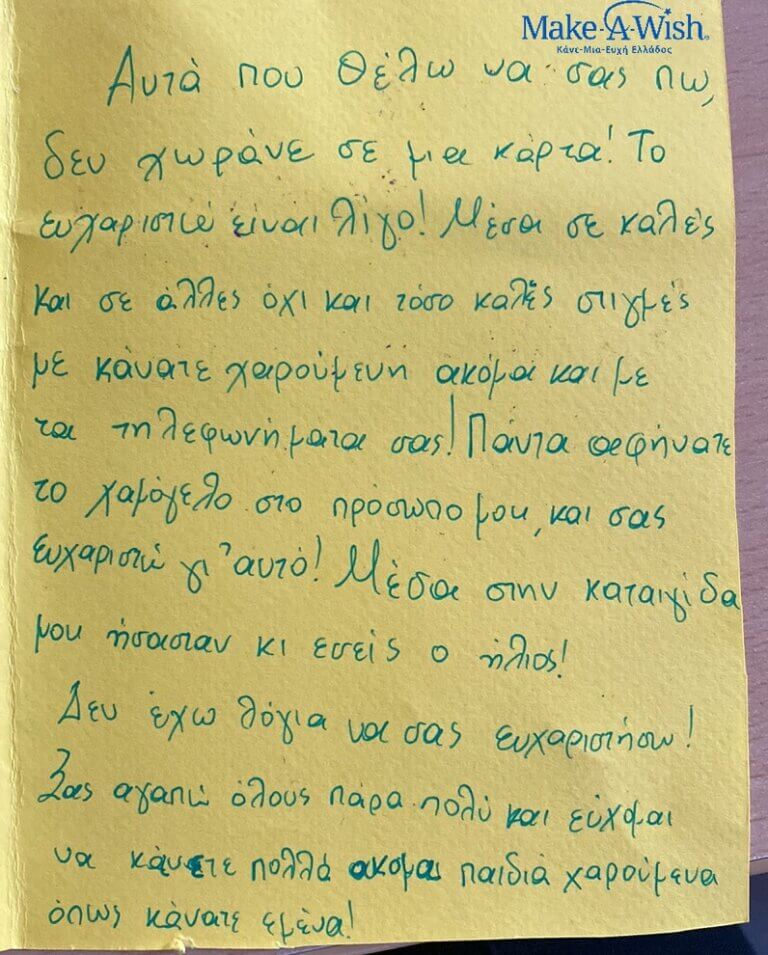 Make-A-Wish®
Κάνε-Μια-Ευχή Ελλάδος
Αυτά που θέλω να σας πω,
δεν χωράνε σε μια κάρτα! Το
ευχαριστώ είναι λίγο! Μέσα σε καλές
και σε άλλες όχι και τόσο καλές στιγμές
με κάνατε χαρούμενη ακόμα και με
τα τηλεφωνήματα σας! Πάντα φέρνατε
το χαμόγελο στο πρόσωπο μου, και σας
ευχαριστώ γι 'αυτό! Μέσα στην καταιγίδα
μου ήσασταν κι εσείς ο ήλιος!
Δεν έχω λόγια να σας ευχαριστήσω!
Σας αγαπώ όλους πάρα πολύ και εύχομαι
να κάνετε πολλά ακόμα παιδιά χαρούμενα
όπως κάνατε εμένα!